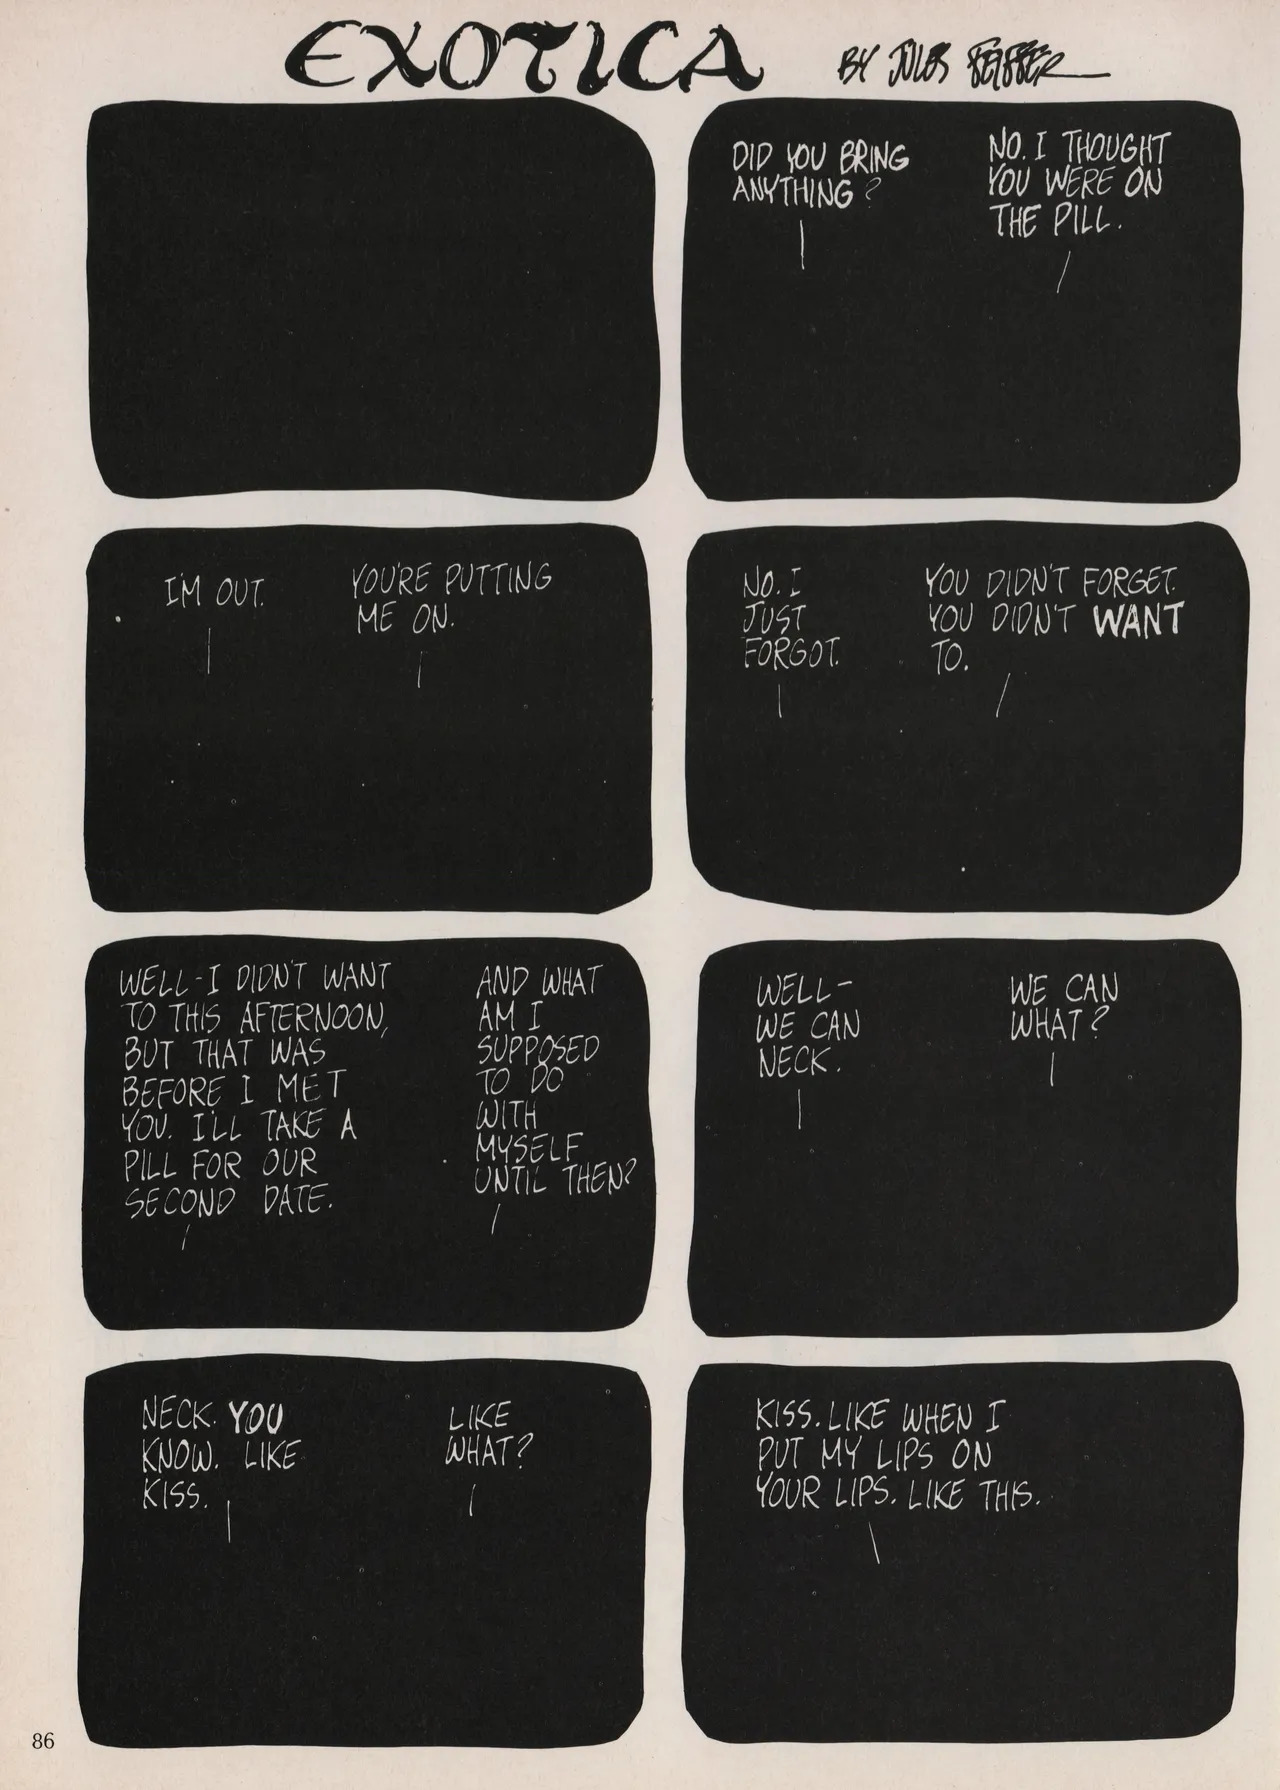 EXOTICA
BY JULES FEIFFER
DID YOU BRING
ANYTHING?
NO. I THOUGHT
YOU WERE ON
THE PILL.
I'M OUT.
YOU'RE PUTTING
ME ON.
NO. I
JUST
FORGOT.
YOU DIDN'T FORGET.
YOU DIDN'T WANT
TO.
WELL - I DIDN'T WANT
TO THIS AFTERNOON,
BUT THAT WAS
BEFORE I MET
YOU. I'LL TAKE A
PILL FOR OUR
SECOND DATE.
AND WHAT
AM I
SUPPOSED
TO DO
WITH
MYSELF
UNTIL THEN?
WELL -
WE CAN
NECK.
WE CAN
WHAT?
NECK. YOU
KNOW. LIKE
KISS.
LIKE
WHAT?
KISS. LIKE WHEN I
PUT MY LIPS ON
YOUR LIPS. LIKE THIS.
86